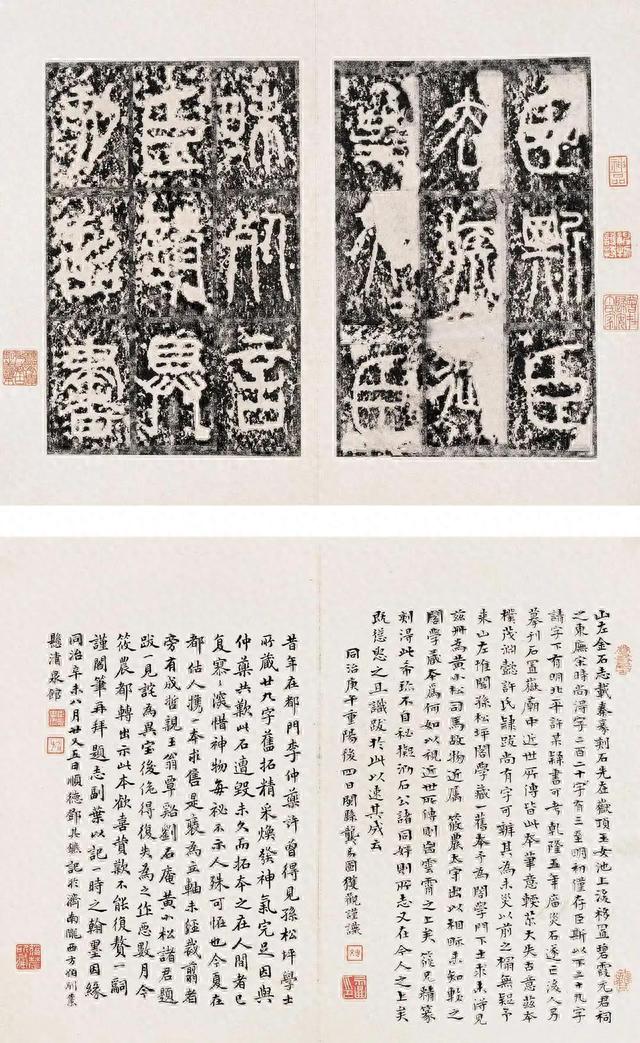 臣斯臣
去疾御
史夫臣
昧死言
臣請具
刻詔書
山左金石志載秦篆剩石先在嶽頂玉女池上後移置碧霞元君祠
之東廡宋時尚得字二百二十字有三至明初僅存臣斯以下二十九字
請字下有明北平許某隸書可考乾隆五年廟災石遂亡後人另
摹刊石置嶽廟中近世所傳皆此本筆意輭茶大失古意茲本
樸茂淵懿許氏隸跋尚有字可辨其為未災以前之榻無疑予
來山左惟聞孫松坪閣學藏一舊本予為閣學門下士求未得見
茲冊為黃小松司馬故物近屬 筱農太守出以相眎未知較之
閣學藏本為何如以視近世所傳則雲霄之上矣 筱兄精篆
刻得此希珎不自秘擬泐石公諸同好則所志又在今人之上矣
既慫恿之且識跋於此以速其成云
同治庚午重陽後四日閩縣龔易圖獲觀謹識
昔年在都門李仲蘗許曾得見孫松坪學士
所藏廿九字舊拓精采煥發神氣完足因與
仲蘗共歎此石遭毀未久而拓本之在人間者已
复寥〻淡惜神物每祕不示人殊可恠也今夏在
都估人攜一本求售是裱為立軸未經裁翦者
旁有成哲親王翁覃谿劉石庵黃小松諸君題
跋一見詫為異寶後佹得復失為之作惡數月今
筱農都轉出示此本歡喜贊歎不能復贅一詞
謹閣筆再拜題志副葉以記一時之翰墨因緣
同治辛未八月廿又五日順德鄧其記於濟南隴西方伯別業
懸清泉館